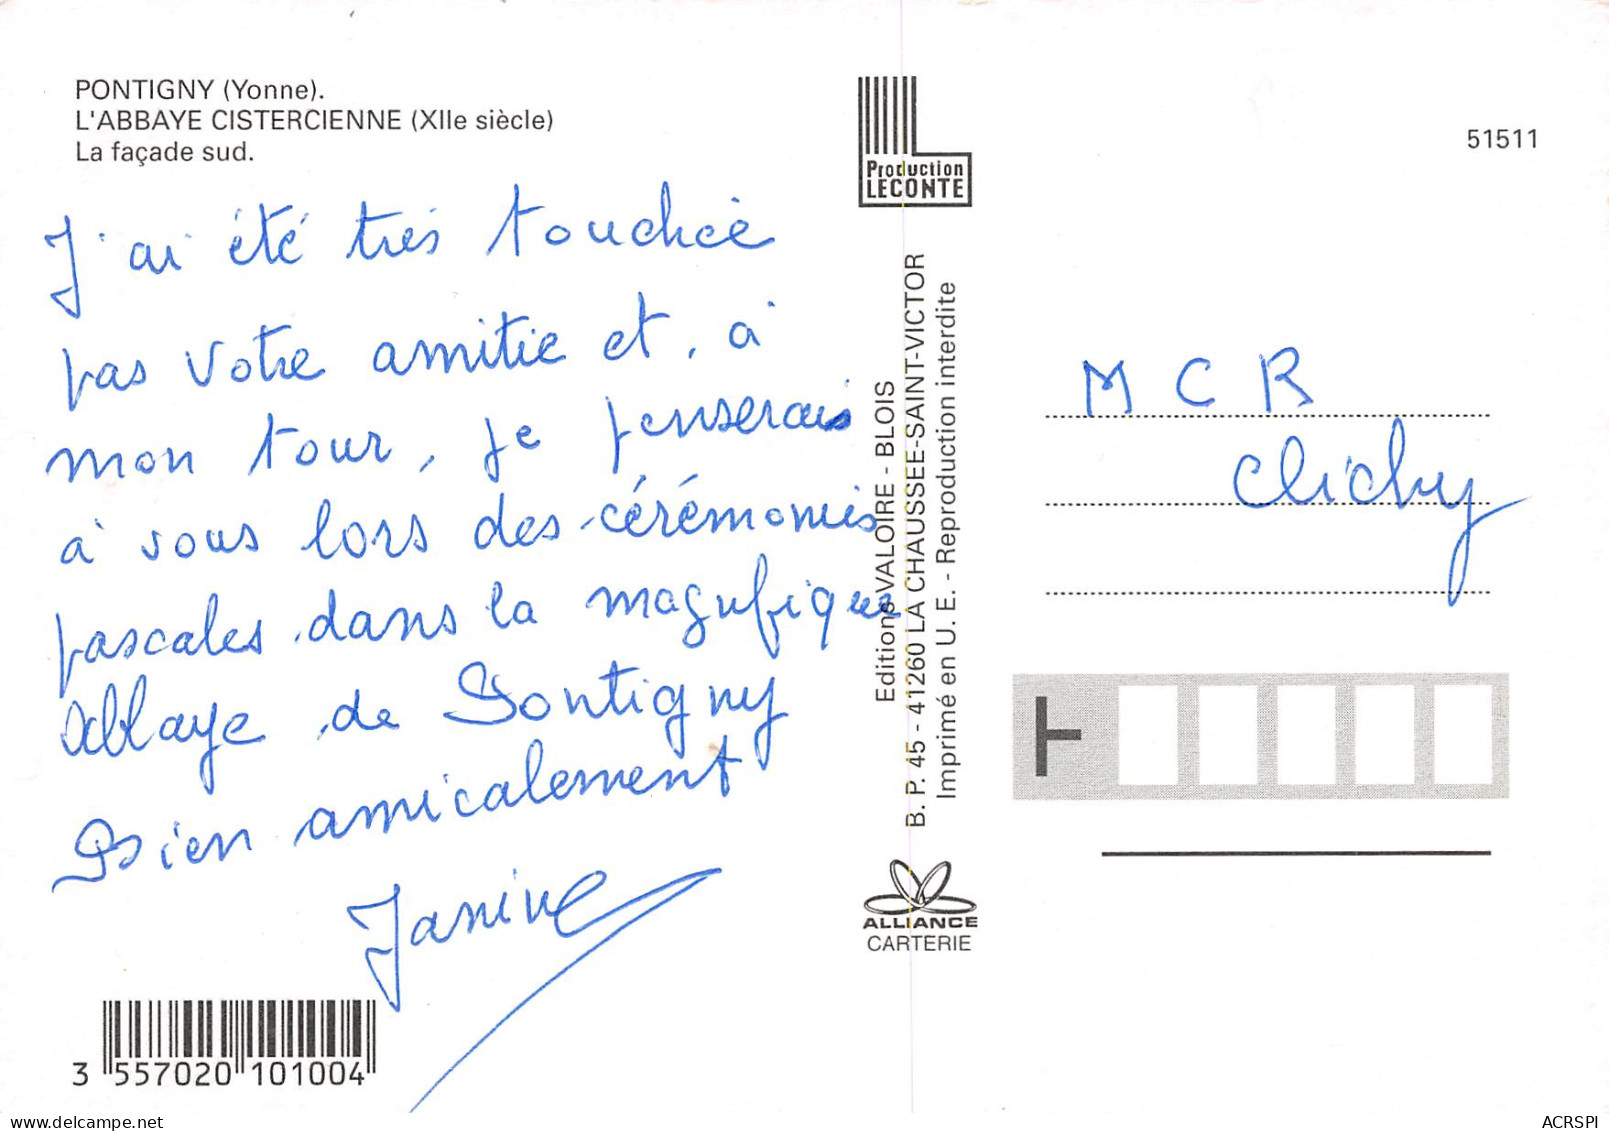 PONTIGNY (Yonne).
L'ABBAYE CISTERCIENNE (XIIe siècle)
La façade sud.
J'ai été très touchée
par votre amitié et, à
mon tour, je penserais
à vous lors des cérémonies
pascales dans la magnifique
abbaye de Pontigny
Bien amicalement
Janine
3 557020 101004
Production
LECONTE
Editions VALOIRE - BLOIS
B. P. 45 - 41260 LA CHAUSSEE-SAINT-VICTOR
Imprimé en U. E. - Reproduction interdite
ALLIANCE
CARTERIE
51511
M C R
Clichy
ACRSPI